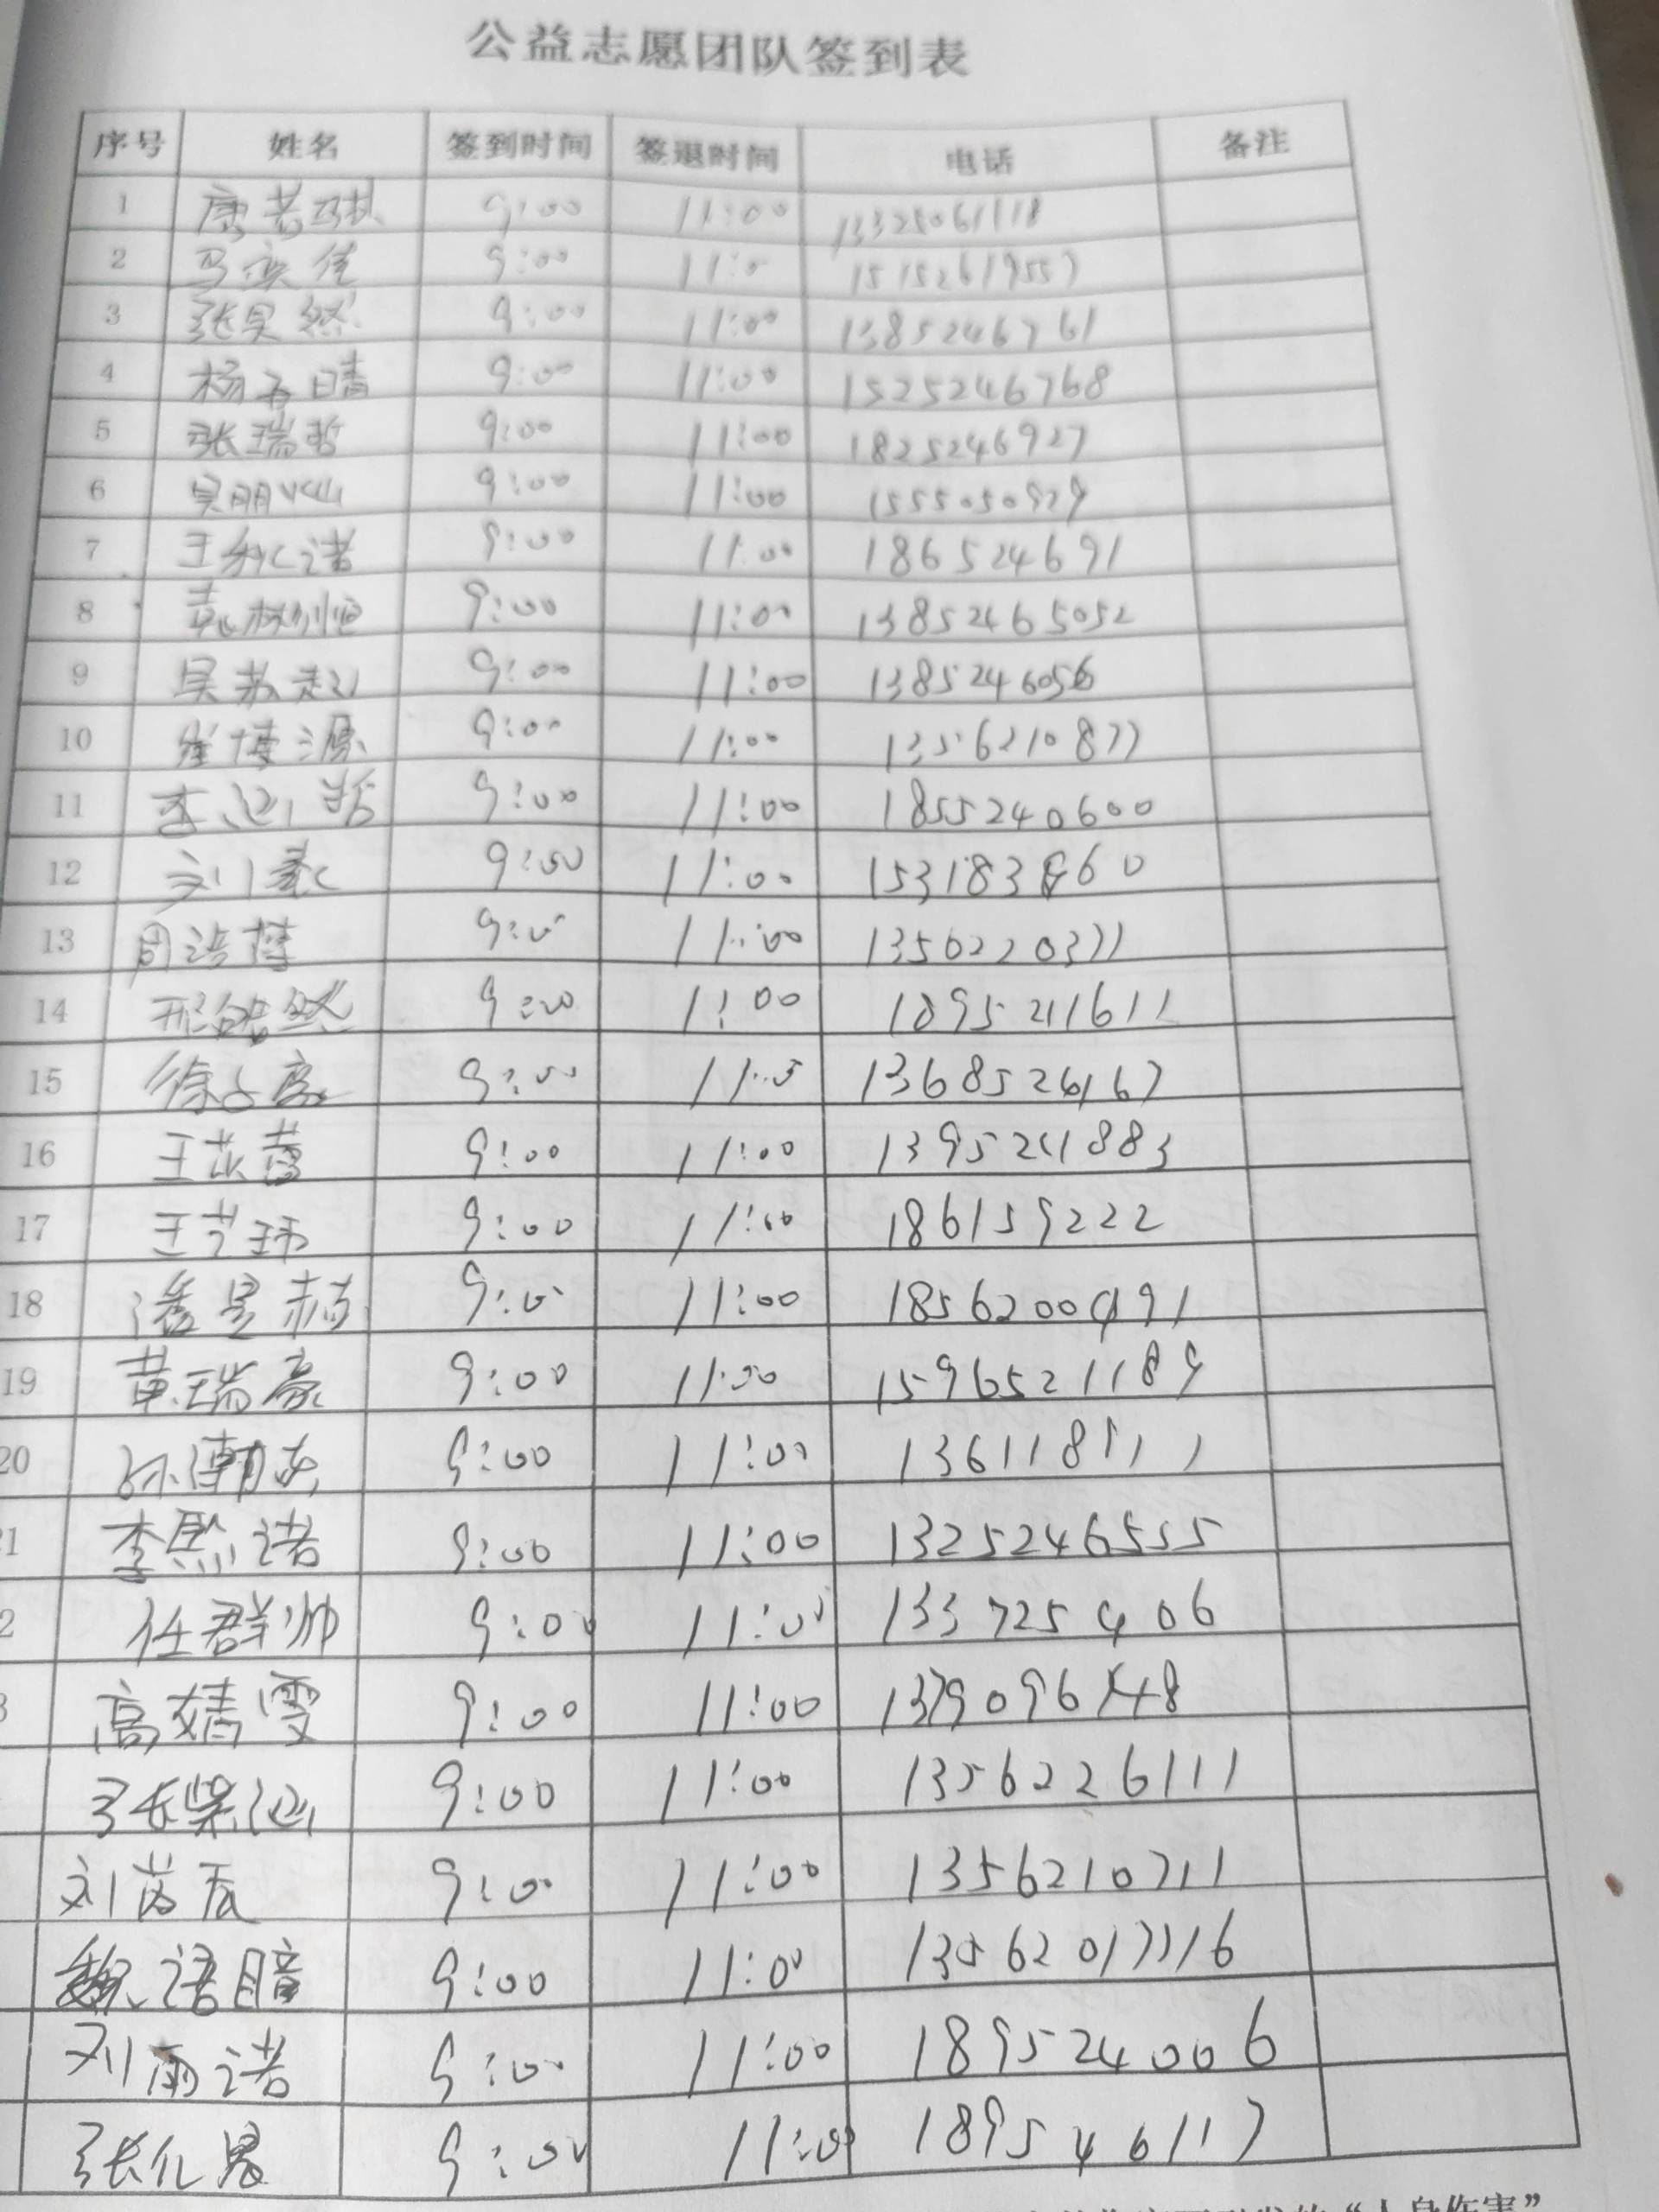 公益志愿团队签到表
序号 姓名 签到时间 签退时间 电话 备注
1 康若琪 9:00 11:00 13325061118
2 马奕佳 9:00 11:0 15152619557
3 张昊然 9:00 11:00 1385246761
4 杨若晴 9:00 11:00 15252246768
5 张瑞哲 9:00 11:00 1825246927
6 吴朋灿 9:00 11:00 1555050929
7 王秋诺 9:00 11:00 186524691
8 9:00 11:00 13852465052
9 吴苏起 9:00 11:00 1385246056
10 崔博源 9:00 11:00 1356210877
11 李汕哲 9:00 11:00 1855240600
12 刘毅 9:00 11:00
13 周浩博 9:00 11:00
14 邢皓然 9:00 11:00 1895211611
15 徐子豪 9:00
16 王芷萱 9:00 11:00 1395241883
17 王艺玮 9:00 11:00 186159222
18 潘昱赫 9:00 11:00
19 黄瑞豪 9:00 11:00 15965211189
20 孙潮东 9:00 11:00 136118111
1 李熙诺 9:00 11:00 1325246555
2 任群帅 9:00 11:00 133725406
3 高婧雯 9:00 11:00
张紫汕 9:00 11:00 1356226111
刘茵辰 9:00 11:00 1356210711
魏语暄 9:00 11:00
刘雨诺 9:00 11:00 1895240006
张化晨 9:00 11:00 189546117
“人身伤害”